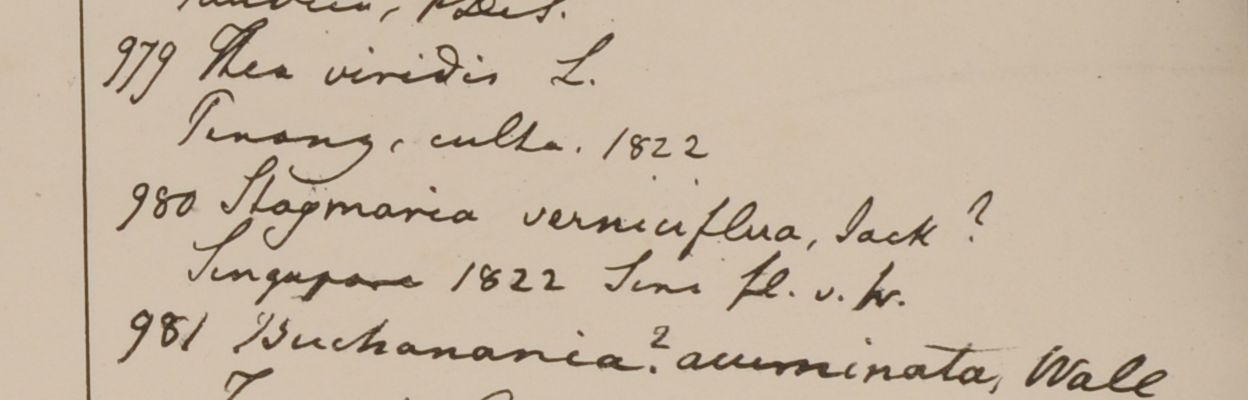 979 Thea viridis L.
Penang, culta. 1822
980 Stagmaria verniciflua, Jack ?
Singapore 1822 Sine fl. v. fr.
981 Buchanania? acuminata, Wall